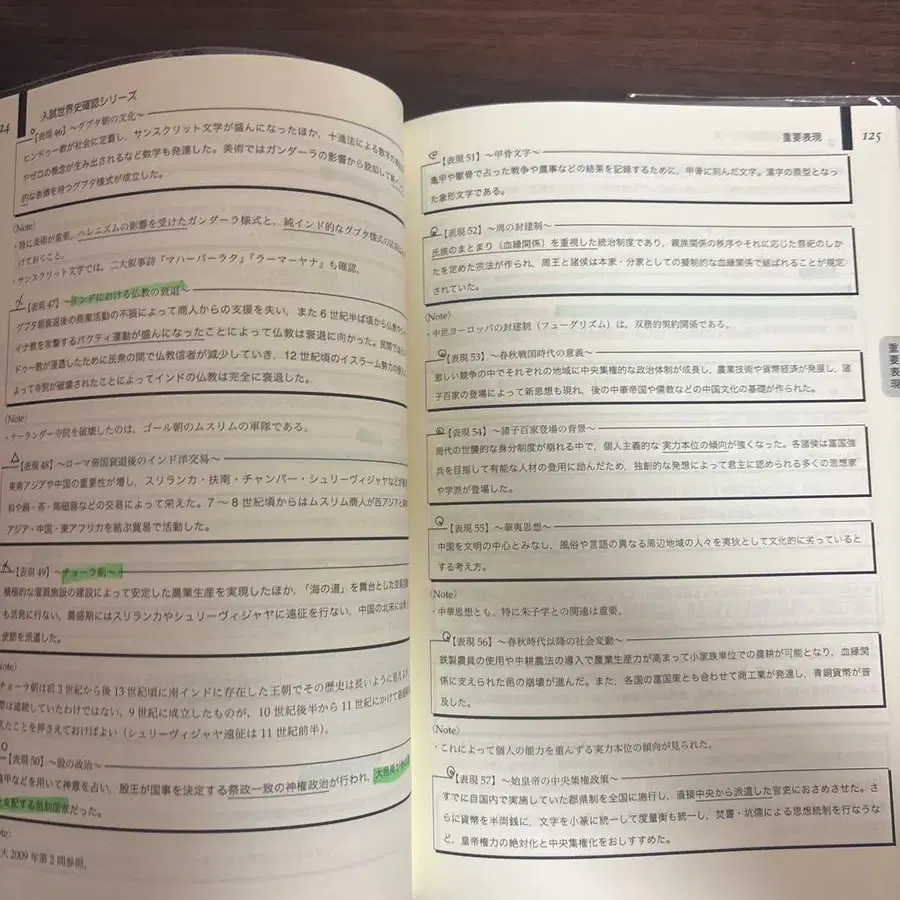 24
入試世界史確認シリーズ
【表現46】〜グプタ朝の文化〜
ヒンドゥー教が社会に定着し，サンスクリット文学が盛んになったほか，十進法による数字の
やゼロの概念が生み出されるなど数学も発達した。美術ではガンダーラの影響から脱却して純イン
的な表情を持つグプタ様式が成立した。
(Note)
・特に美術が重要。ヘレニズムの影響を受けたガンダーラ様式と，純インド的なグプタ様式の
けておくこと。
・サンスクリット文学では，二大叙事詩『マハーバーラタ』『ラーマーヤナ』も確認。
【表現47】〜インドにおける仏教の衰退〜
グプタ朝衰退後の商業活動の不振によって商人からの支援を失い，また6世紀半ば頃から仏教や
イナ教を攻撃するバクティ運動が盛んになったことによって仏教は衰退に向かった。民間では
ドゥー教が浸透したために民衆の間で仏教信者が減少していき，12世紀頃のイスラーム勢力の
よって寺院が破壊されたことによってインドの仏教は完全に衰退した。
(Note)
・ナーランダー寺院を破壊したのは，ゴール朝のムスリムの軍隊である。
【表現48】〜ローマ帝国衰退後のインド洋交易〜
東南アジアや中国の重要性が増し，スリランカ・扶南・チャンパー・シュリーヴィジャヤなどが
料や絹・茶・陶磁器などの交易によって栄えた。7〜8世紀頃からはムスリム商人が西アジアと
アジア・中国・東アフリカを結ぶ貿易で活動した。
【表現49】〜チョーラ朝〜
積極的な灌漑施設の建設によって安定した農業生産を実現したほか，「海の道」を舞台とした交易
も活発に行ない，最盛期にはスリランカやシュリーヴィジャヤに遠征を行ない，中国の北宋には
使節を派遣した。
Note)
チョーラ朝は前3世紀から後13世紀頃に南インドに存在した王朝でその歴史は長いように
際は連続していたわけではない。9世紀に成立したものが，10世紀後半から11世紀にかけて
えたことを押さえておけばよい（シュリーヴィジャヤ遠征は11世紀前半）。
【表現50】〜殷の政治〜
亀甲などを用いて神意を占い，殷王が国事を決定する祭政一致の神権政治が行われ，大邑商が
支配する邑制国家だった。
ote)
大2009年第2問参照。
重要表現
125
【表現51】〜甲骨文字〜
亀甲や獣骨で占った戦争や農事などの結果を記録するために，甲骨に刻んだ文字。漢字の原型となっ
た象形文字である。
【表現52】〜周の封建制〜
氏族のまとまり（血縁関係）を重視した統治制度であり，親族関係の秩序やそれに応じた祭祀のしか
たを定めた宗法が作られ，周王と諸侯は本家・分家としての擬制的な血縁関係で結ばれることが規定
されていた。
(Note)
・中世ヨーロッパの封建制（フューダリズム）は，双務的契約関係である。
【表現53】〜春秋戦国時代の意義〜
激しい競争の中でそれぞれの地域に中央集権的な政治体制が成長し，農業技術や貨幣経済が発展し，諸
子百家の登場によって新思想も現れ，後の中華帝国や儒教などの中国文化の基礎が作られた。
重要表現
【表現54】〜諸子百家登場の背景〜
周代の世襲的な身分制度が崩れる中で，個人主義的な実力本位の傾向が強くなった。各諸侯は富国強
兵を目指して有能な人材の登用に励んだため，独創的な発想によって君主に認められる多くの思想家
や学派が登場した。
【表現55】〜華夷思想〜
中国を文明の中心とみなし，風俗や言語の異なる周辺地域の人々を夷狄として文化的に劣っていると
する考え方。
(Note)
・中華思想とも。特に朱子学との関連は重要。
【表現56】〜春秋時代以降の社会変動〜
鉄製農具の使用や牛耕農法の導入で農業生産力が高まって小家族単位での農耕が可能となり，血縁関
係に支えられた邑の崩壊が進んだ。また，各国の富国策とも合わせて商工業が発達し，青銅貨幣が普
及した。
(Note)
・これによって個人の能力を重んずる実力本位の傾向が見られた。
【表現57】〜始皇帝の中央集権政策〜
すでに自国内で実施していた郡県制を全国に施行し，直接中央から派遣した官吏におさめさせた。さ
らに貨幣を半両銭に，文字を小篆に統一して度量衡も統一し，焚書・坑儒による思想統制を行なうな
ど，皇帝権力の絶対化と中央集権化をおしすすめた。